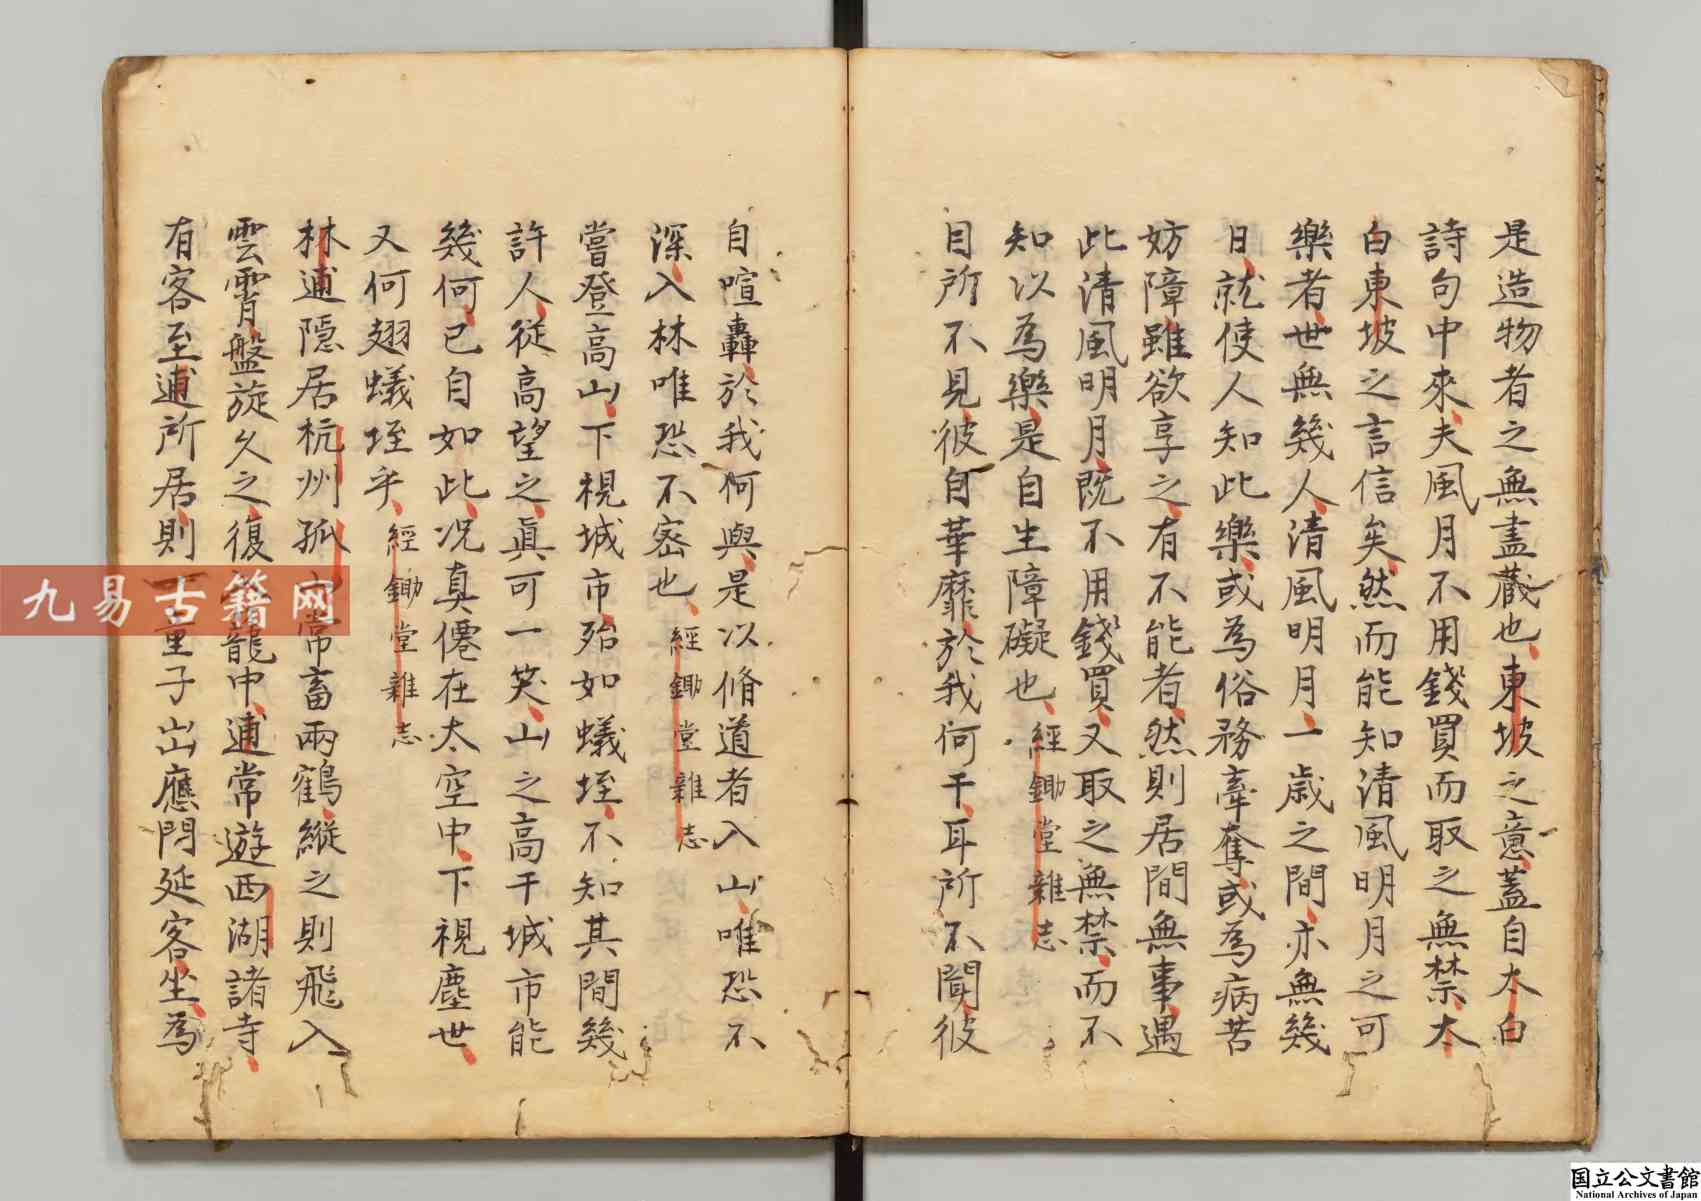 是造物者之無盡藏也東坡之意蓋自太白
詩句中來夫風月不用錢買而取之無禁太
白東坡之言信矣然而能知清風明月之可
樂者世無幾人清風明月一歲之間亦無幾
日就使人知此樂或為俗務牽奪或為病苦
妨障雖欲享之有不能者然則居閒無事遇
此清風明月既不用錢買又取之無禁而不
知以為樂是自生障礙也經鋤堂雜志
目所不見彼自華靡於我何干耳所不聞彼
自喧轟於我何與是以脩道者入山唯恐不
深入林唯恐不密也經鋤堂雜志
嘗登高山下視城市殆如蟻垤不知其間幾
許人從高望之真可一笑山之高于城市能
幾何已自如此况真僊在太空中下視塵世
又何翅蟻垤乎經鋤堂雜志
林逋隱居杭州孤常畜兩鶴縱之則飛入
雲霄盤旋久之復籠中逋常遊西湖諸寺
有客至逋所居則童子出應門延客坐為
九易古籍网
国立公文書館
National Archives of Japan